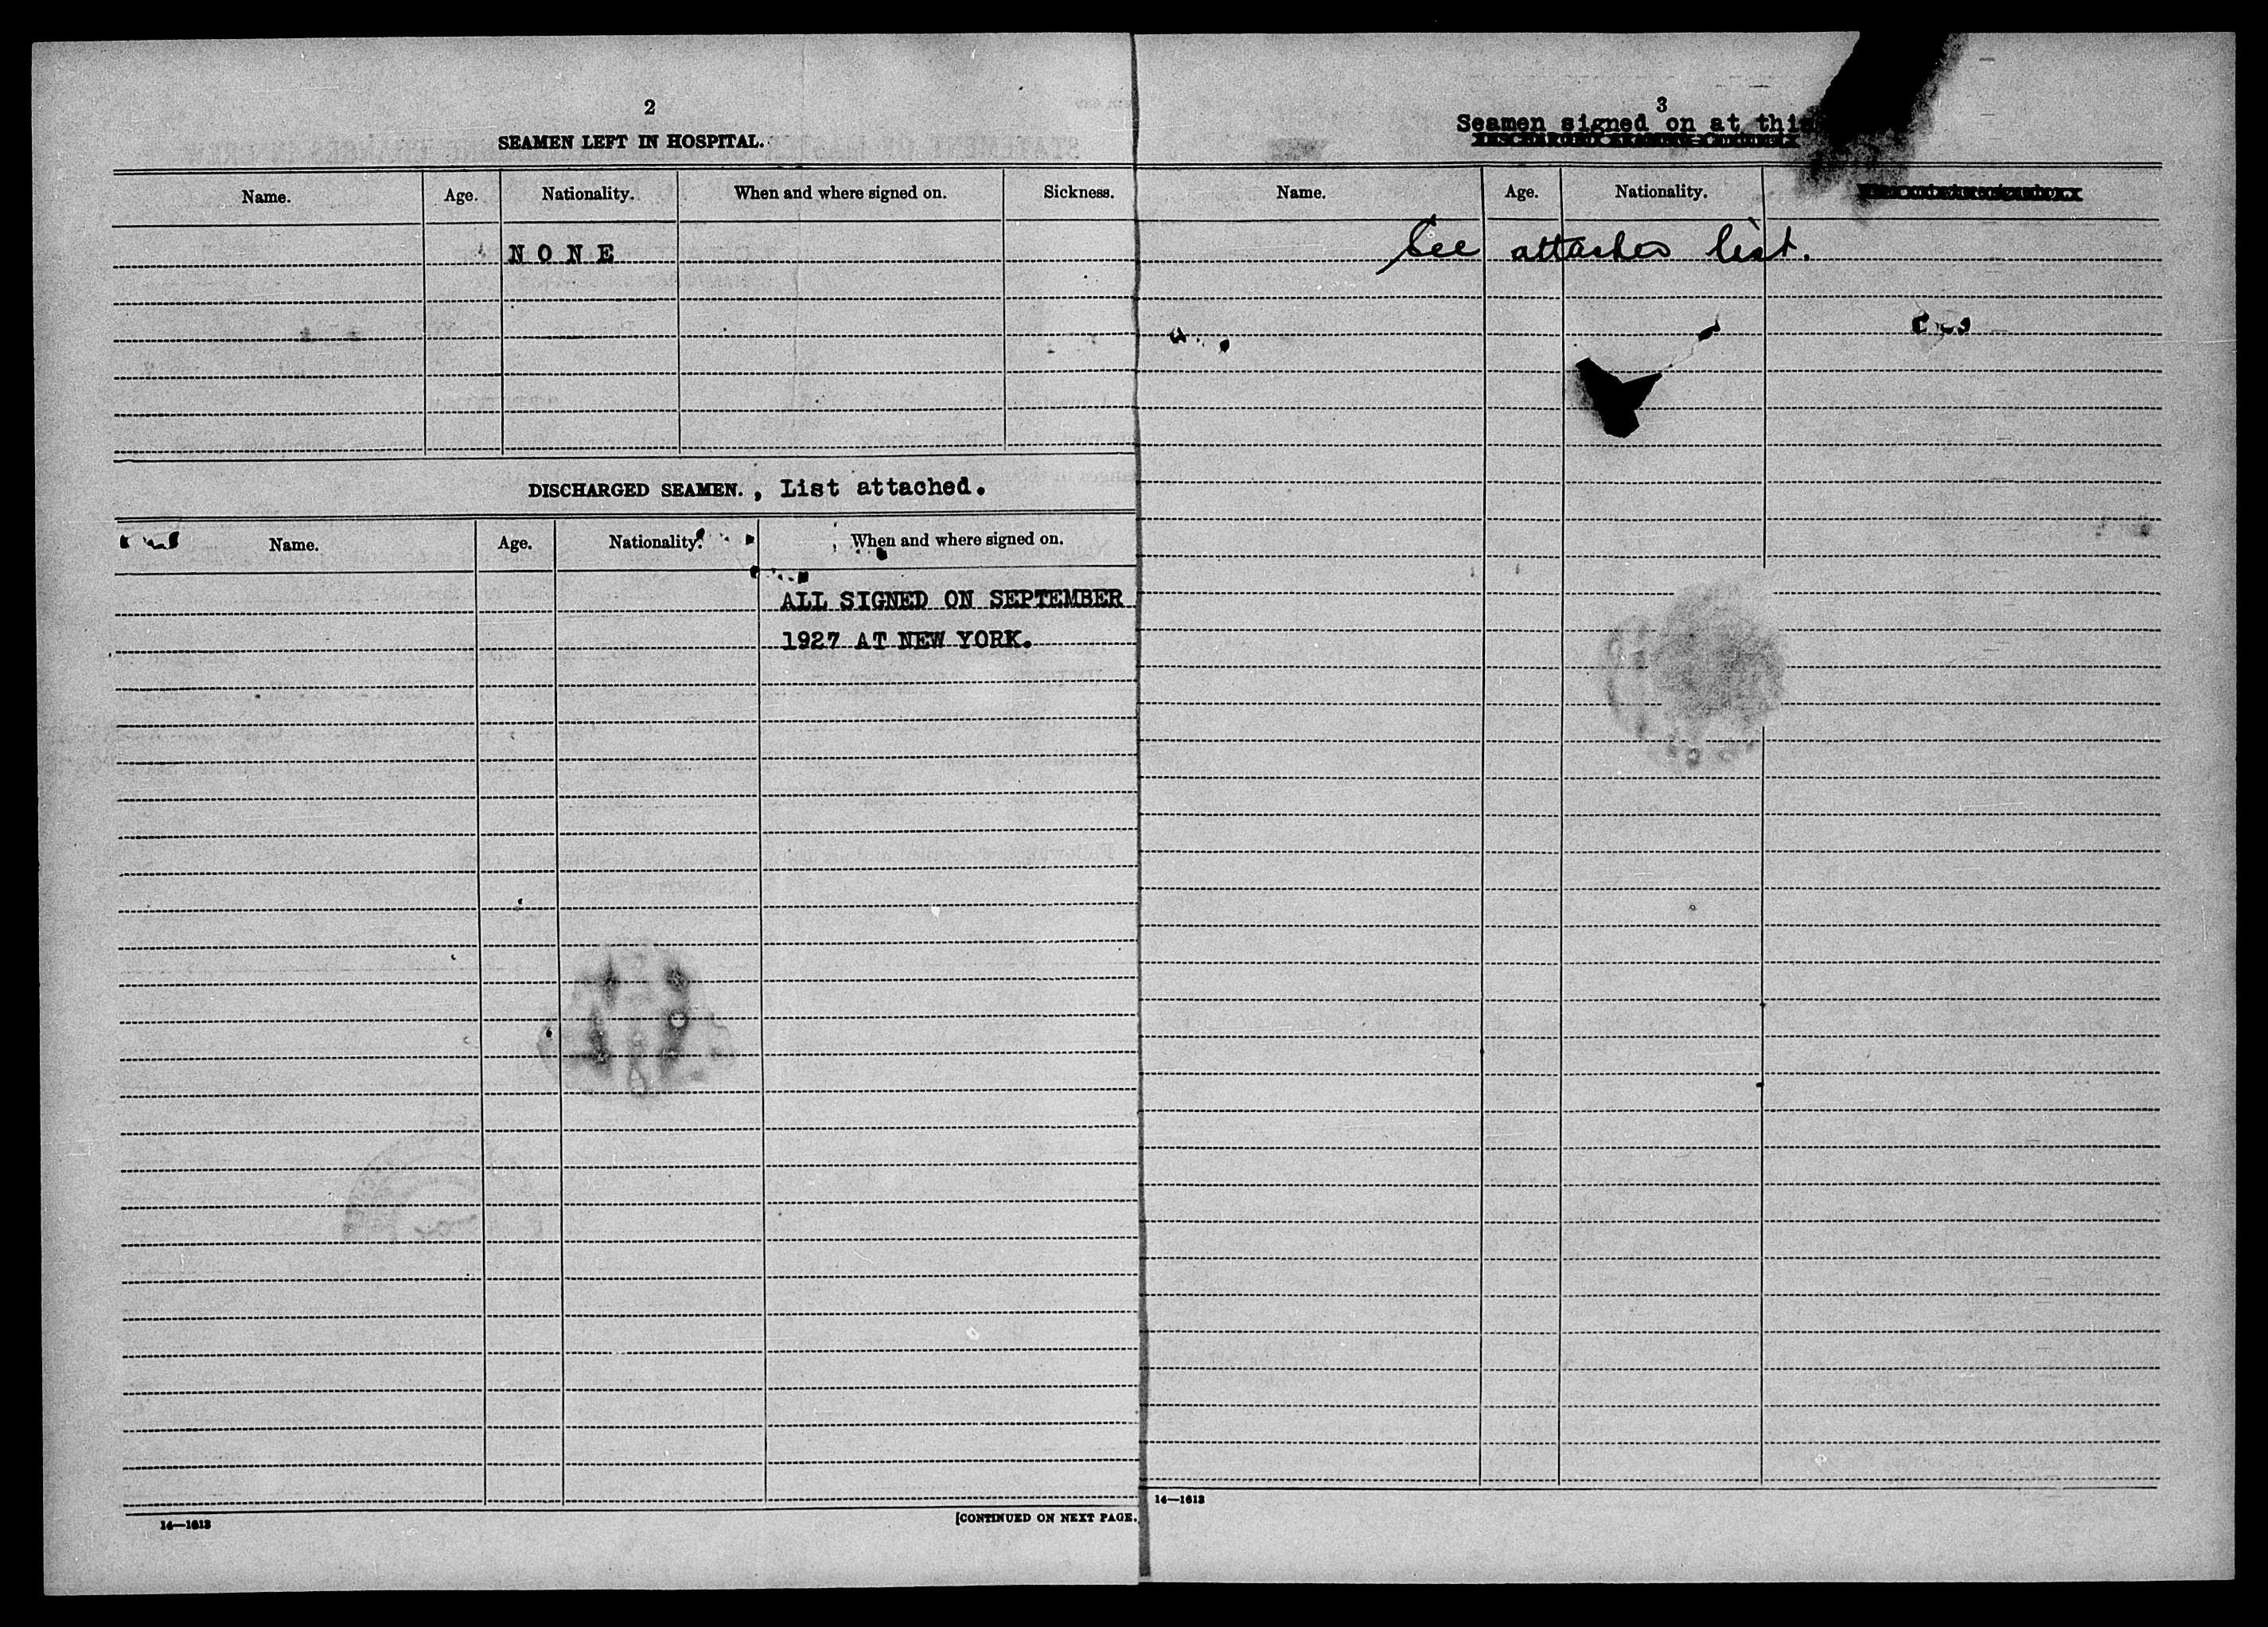 2
SEAMEN LEFT IN HOSPITAL.
Name. Age. Nationality. When and where signed on. Sickness.
NONE
DISCHARGED SEAMEN., List attached.
Name. Age. Nationality. When and where signed on.
ALL SIGNED ON SEPTEMBER
1927 AT NEW YORK.
14—1613
[CONTINUED ON NEXT PAGE.
3
Seamen signed on at this
Name. Age. Nationality.
See attached list.
14—1613